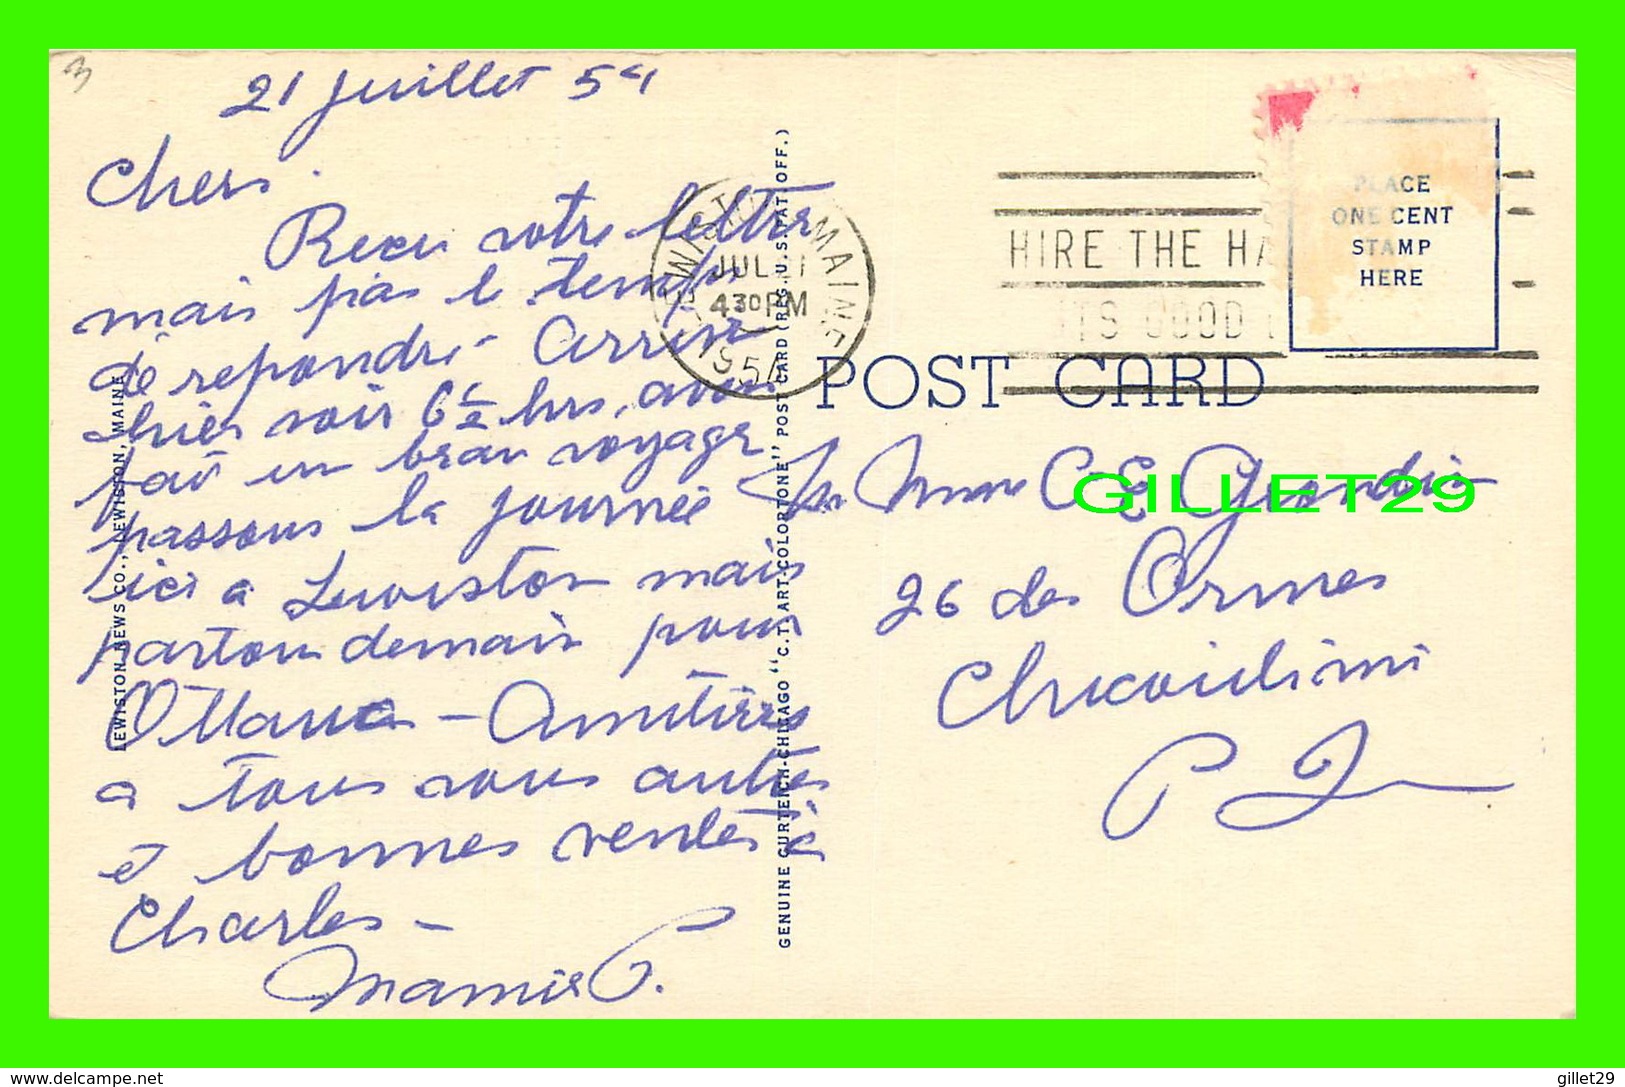 3
21 juillet 54
Chers.
Recu votre lettre
mais pas le temps
de repondre - Arrivé
hier soir 6 1/2 hrs, avons
fait un beau voyage
passons la journée
ici a Lewiston mais
partons demain pour
Ottawa - Amitiées
a tous vous autres
et bonnes ventes à
Charles -
Mamie P.
LEWISTON NEWS CO., LEWISTON, MAINE
GENUINE CURTEICH-CHICAGO "C.T. ART-COLORTONE" POST CARD (REG. U.S. PAT. OFF.)
LEWISTON MAINE
JUL 21
4 30 PM
1954
HIRE THE HA
ITS GOOD
PLACE
ONE CENT
STAMP
HERE
POST CARD
Mme C. E. Grondin
GILLET29
26 des Ormes
Chicoutimi
P
gillet29
http://www.delcampe.net